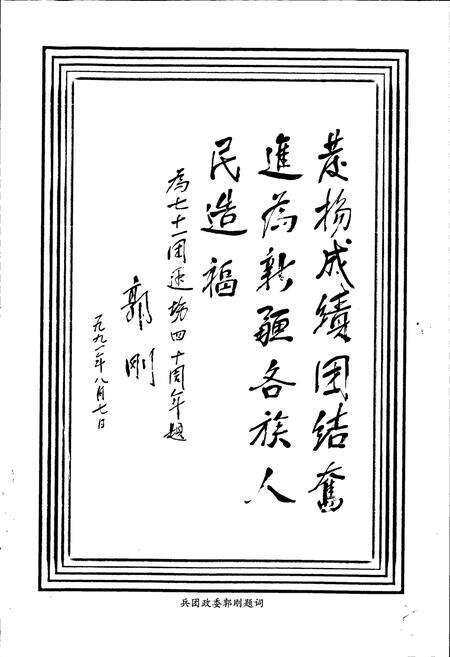 发扬成绩团结奮
進为新疆各族人
民造福
为七十一团建场四十周年题
郭刚
一九九二年八月七日
兵团政委郭刚题词